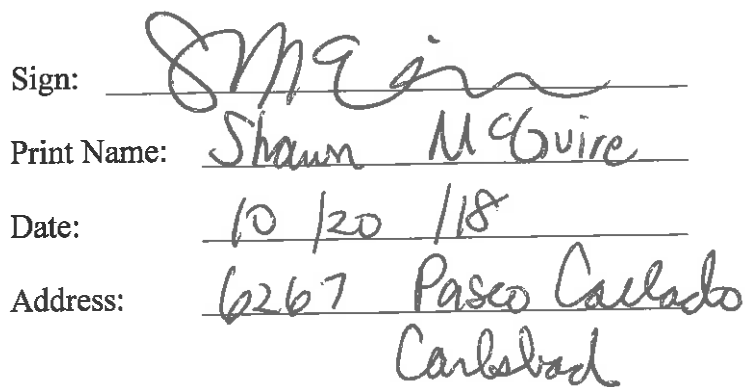 Sign: SMcGuire
Print Name: Shawn McGuire
Date: 10/20/18
Address: 6267 Paseo Collado
Carlsbad